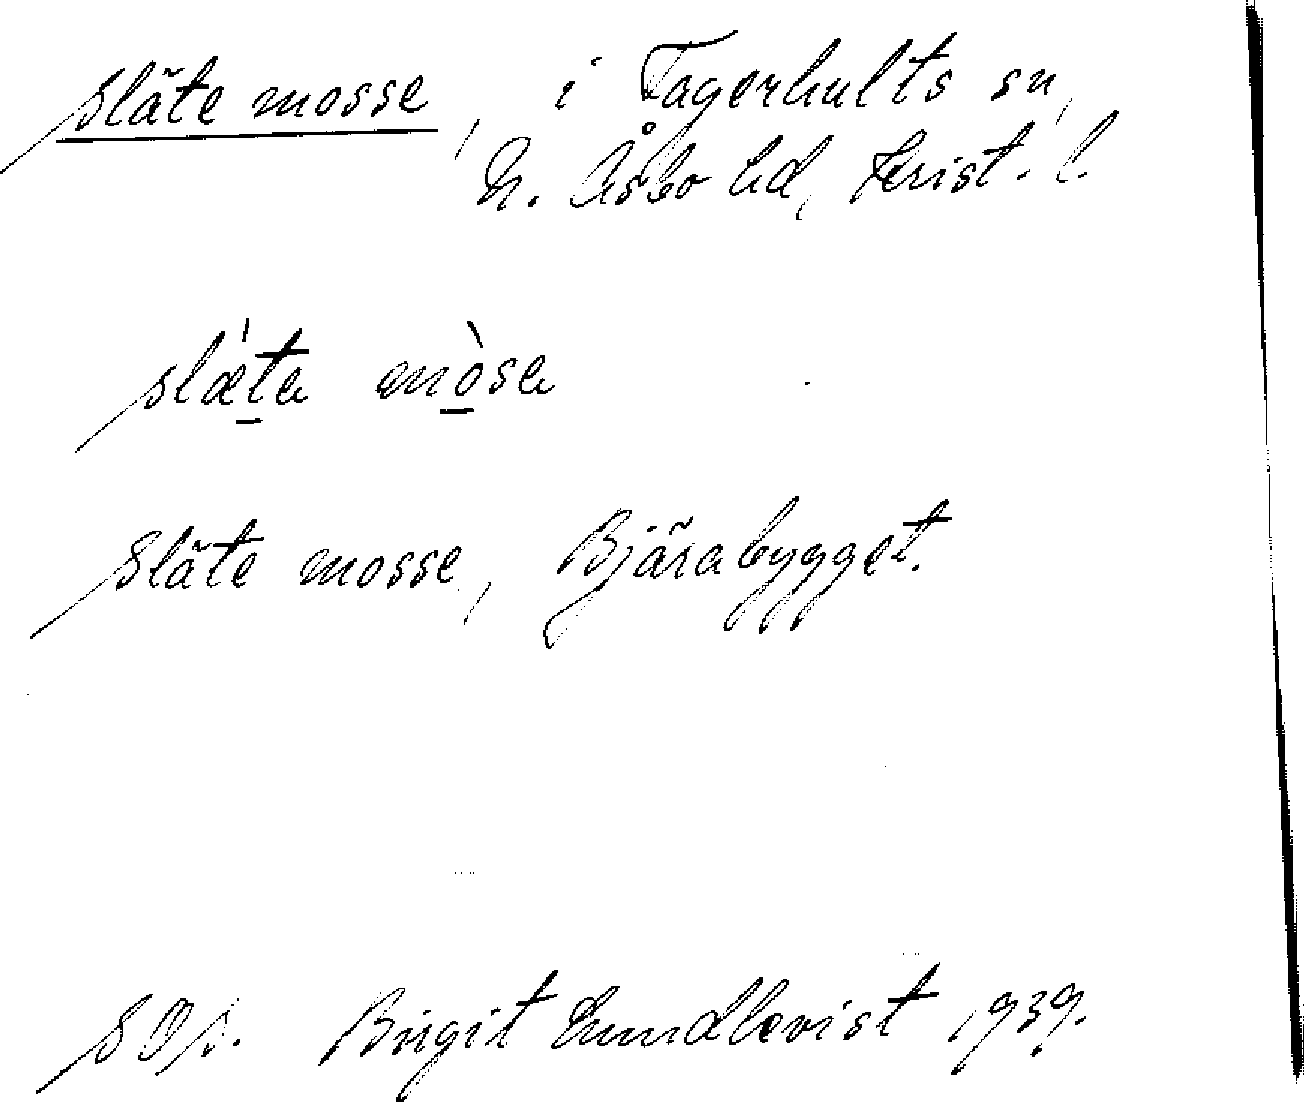 Släte mosse, i Fagerhults sn,
N. Åsbo hd, Krist. l.
slæ̀ta mòsa
Släte mosse, Bjärabygget.
SOS. Birgit Lundkvist 1939.